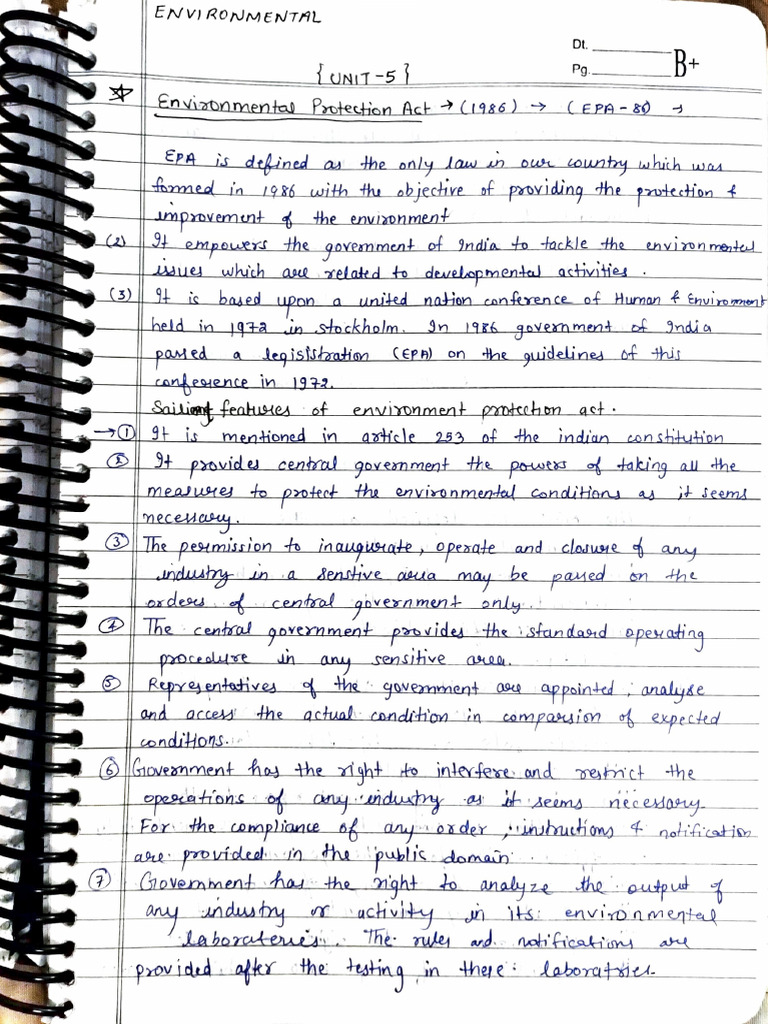 ENVIRONMENTAL
Dt.
{UNIT-5}
Pg. B+
☆ Environmental Protection Act → (1986) → (EPA-86) →
EPA is defined as the only law in our country which was
formed in 1986 with the objective of providing the protection &
improvement of the environment
(2) It empowers the government of India to tackle the environmental
issues which are related to developmental activities.
(3) It is based upon a united nation conference of Human & Environment
held in 1972 in stockholm. In 1986 government of India
passed a legisistration (EPA) on the guidelines of this
conference in 1972.
features of environment protection act.
→ ① It is mentioned in article 253 of the indian constitution
② It provides central government the powers of taking all the
measures to protect the environmental conditions as it seems
necessary.
③ The permission to inaugurate, operate and closure of any
industry in a senstive area may be passed on the
orders of central government only.
④ The central government provides the standard operating
procedure in any sensitive area.
⑤ Representatives of the government are appointed, analyse
and access the actual condition in comparsion of expected
conditions.
⑥ Government has the right to interfere and restrict the
operations of any industry as it seems necessary.
For the compliance of any order, instructions & notification
are provided in the public domain
⑦ Government has the right to analyze the output of
any industry or activity in its environmental
laborateries. The rules and notifications are
provided after the testing in these laboratries.